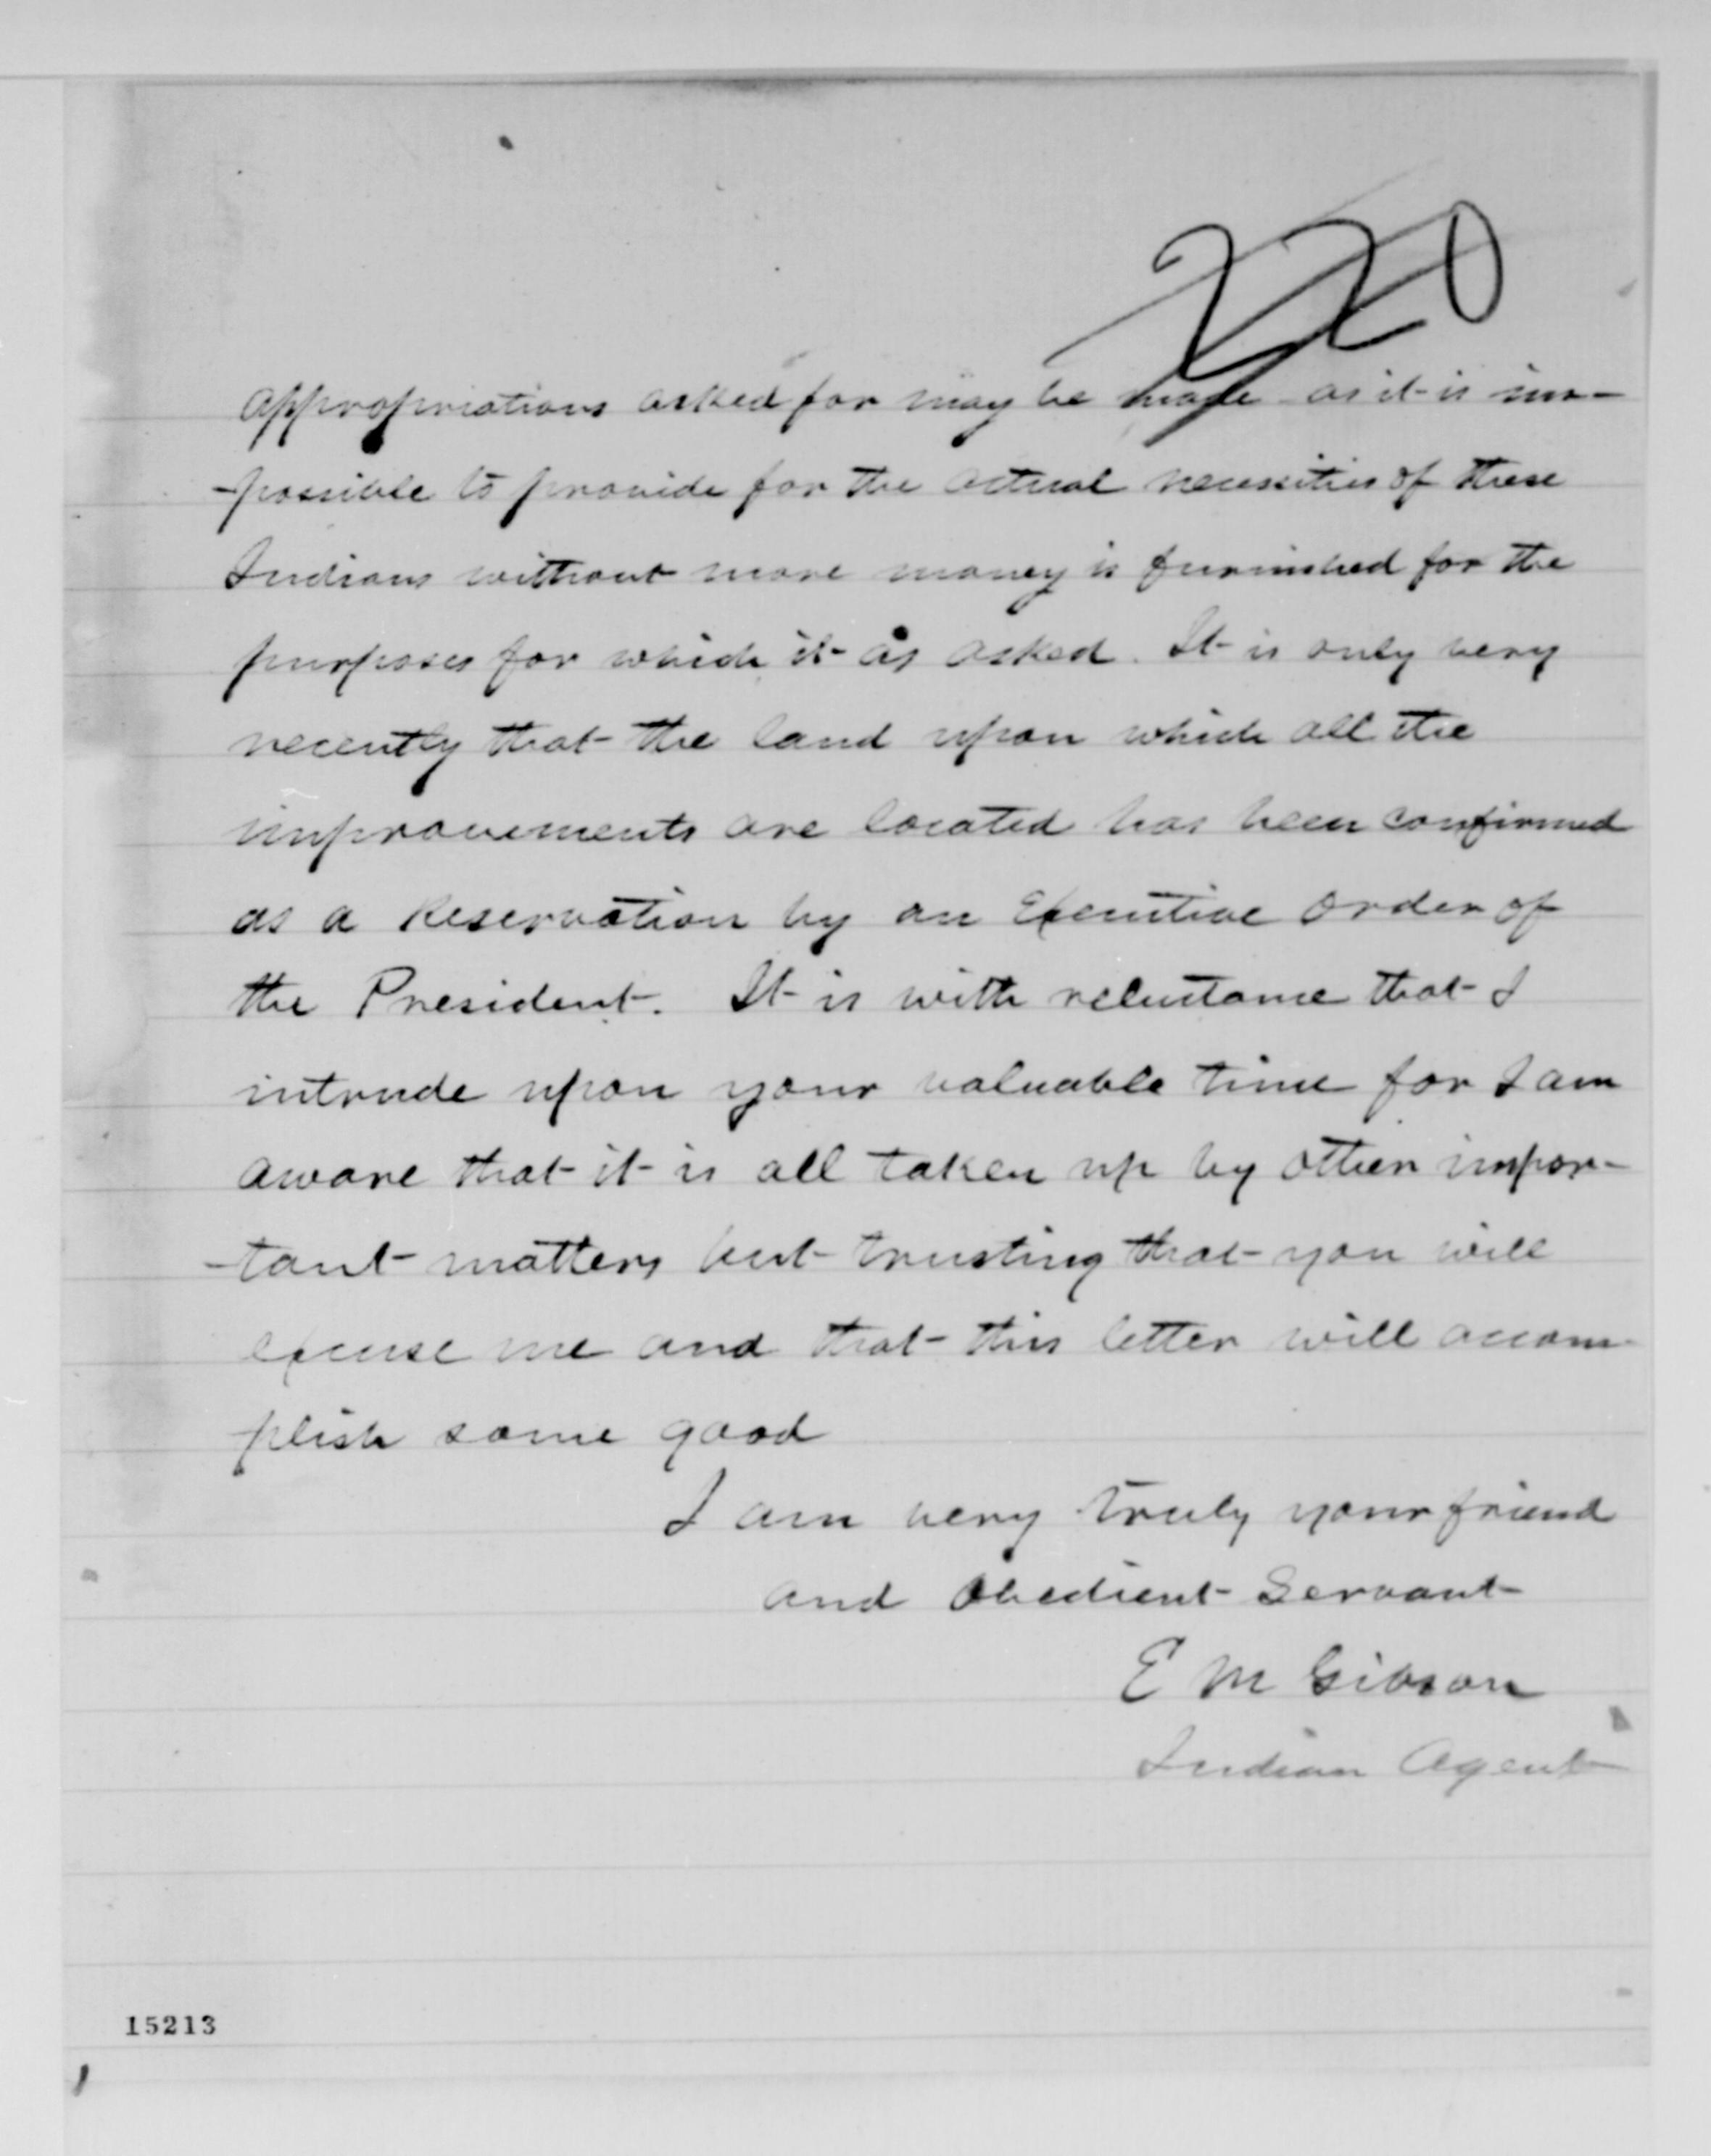 220
appropriations asked for may be made as it is im-
-possible to provide for the actual necessities of these
Indians without more money is furnished for the
purposes for which it is asked. It is only very
recently that the land upon which all the
improvements are located has been confirmed
as a Reservation by an Executive order of
the President. It is with reluctance that I
intrude upon your valuable time for I am
aware that it is all taken up by other impor-
-tant matters but trusting that you will
excuse me and that this letter will accom-
plish some good
I am very truly your friend
and Obedient Servant
E M Gibson
Indian Agent
15213